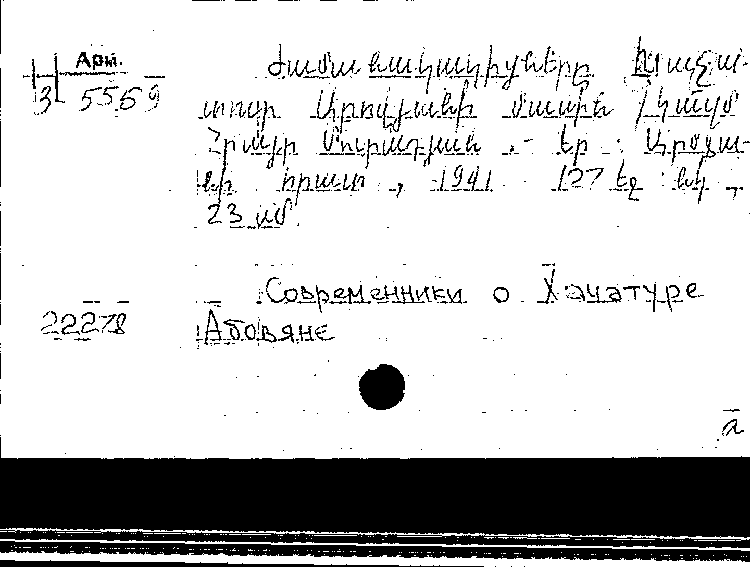 Арм.
3 5569
Ժամանակակիցները Խաչա-
տուր Աբովյանի մասին / կազմ
Հրայր Մուրադյան .- Եր : Արմֆա-
նի հրատ , 1941 127 էջ : նկ ,
23 սմ.
Современники о Хачатуре
22278 Абовяне
а